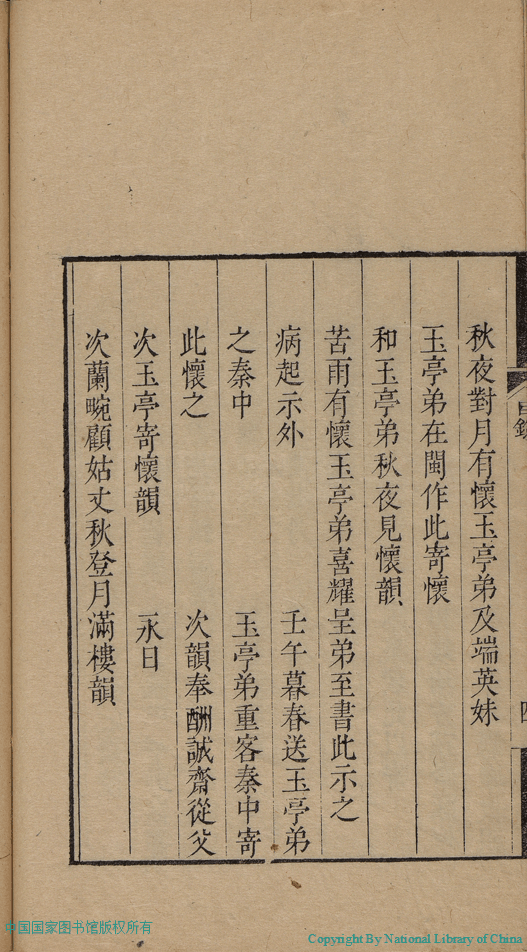 秋夜對月有懷玉亭弟及端英妹
玉亭弟在閩作此寄懷
和玉亭弟秋夜見懷韻
苦雨有懷玉亭弟喜耀呈弟至書此示之
病起示外　壬午暮春送玉亭弟
之秦中　玉亭弟重客秦中寄
此懷之　次韻奉酬誠齋從父
次玉亭寄懷韻　永日
次蘭畹顧姑丈秋登月滿樓韻
中国国家图书馆版权所有
Copyright By National Library of China